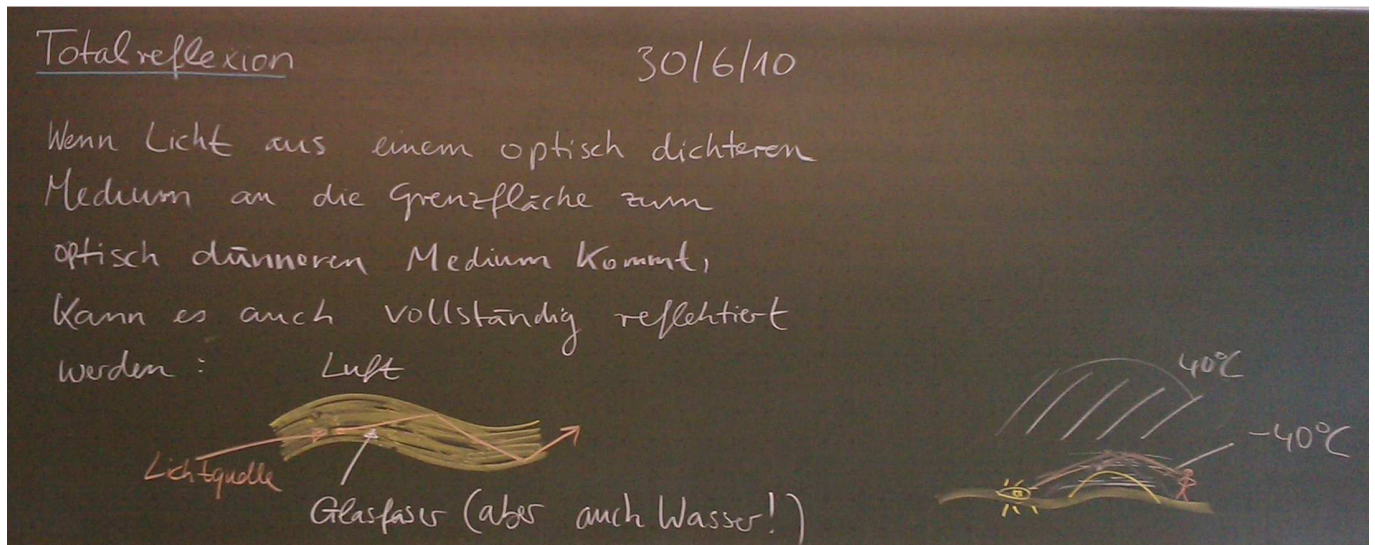 Totalreflexion 30/6/10
Wenn Licht aus einem optisch dichteren
Medium an die Grenzfläche zum
optisch dünneren Medium kommt,
kann es auch vollständig reflektiert
werden: Luft
Lichtquelle
Glasfaser (aber auch Wasser!)
40°C
-40°C